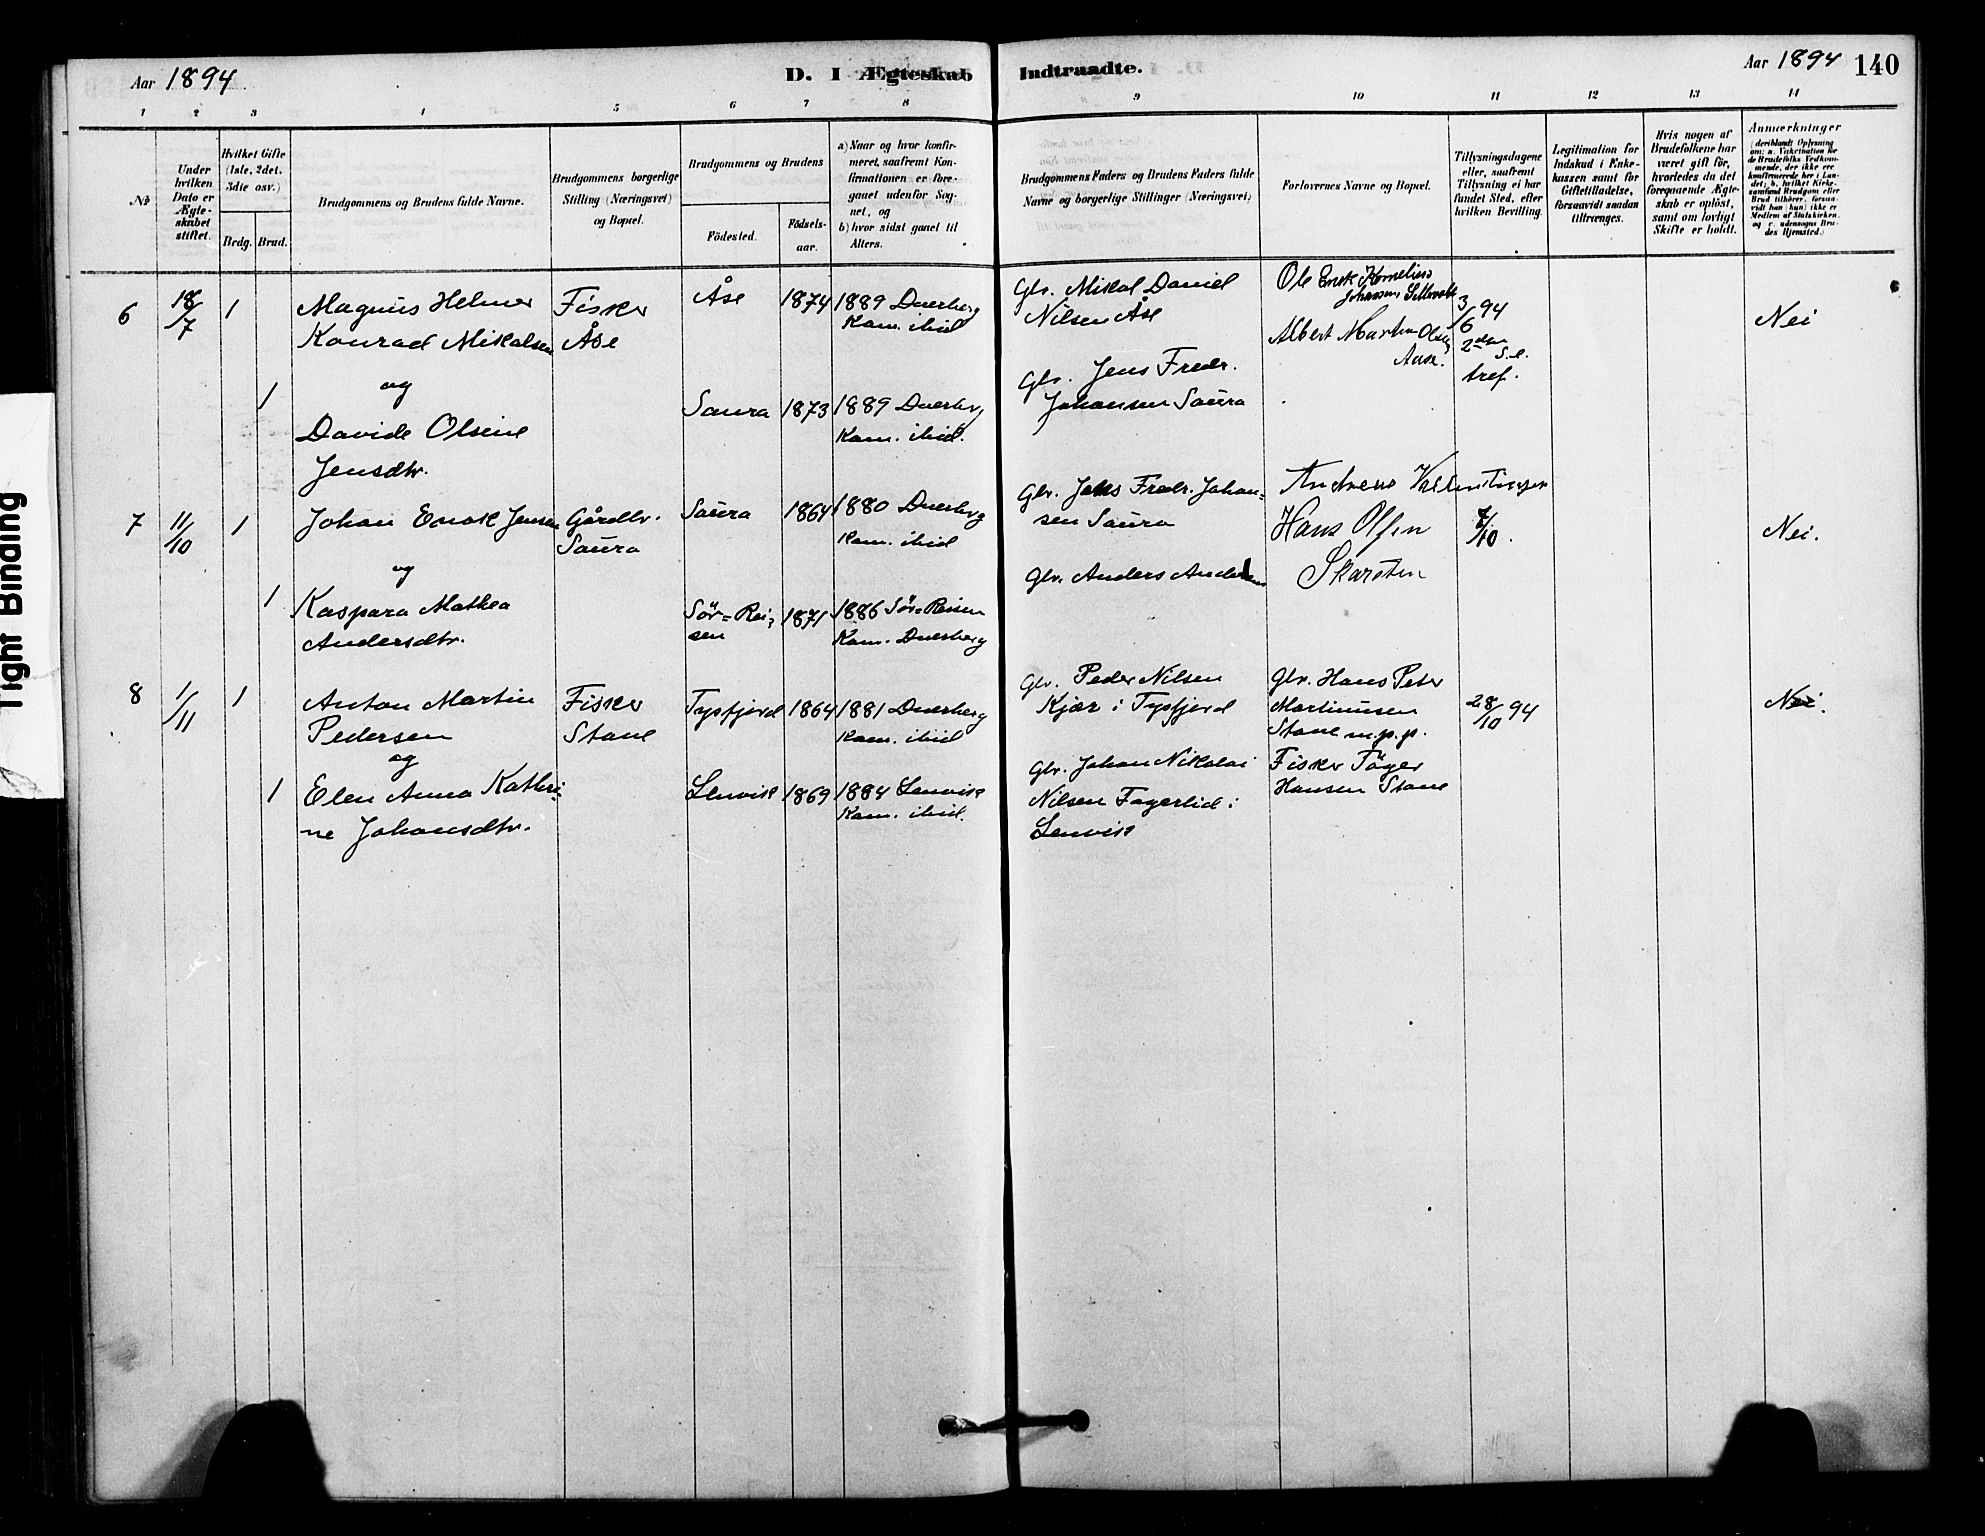 Aar 1894
D. I Ægteskab Indtraadte.
Aar 1894 140
1 2 3 4 5 6 7 8 9 10 11 12 13 14
№
Under hvilken Dato er Ægteskabet stiftet.
Hvilket Gifte (1ste, 2det, 3die osv.)
Brdg. Brud.
Brudgommens og Brudens fulde Navne.
Brudgommens borgerlige Stilling (Næringsvei) og Bopæl.
Brudgommens og Brudens
Födested.
Födselsaar.
a) Naar og hvor konfirmeret, saafremt Konfirmationen er foregaaet udenfor Sognet, og
b) hvor sidst gaaet til Alters.
Brudgommens Faders og Brudens Faders fulde Navne og borgerlige Stillinger (Næringsvei)
Forlovernes Navne og Bopæl.
Tillysningsdagene eller, saafremt Tillysning ei har fundet Sted, efter hvilken Bevilling.
Legitimation for Indskud i Enkekassen samt for Giftetilladelse, forsaavidt saadan tiltrænges.
Hvis nogen af Brudefolkene har været gift för, hvorledes da det foregaaende Ægteskab er oplöst, samt om lovligt Skifte er holdt.
Anmærkninger
(deriblandt Oplysning om: a. Vakcination for de Brudefolks Vedkommende, der ikke ere konfirmerede her i Landet; b. hvilket Kirkesamfund Brudgom eller Brud tilhörer, forsaavidt han (hun) ikke er Medlem af Statskirken, og c. udensogns Brudes Hjemsted.)
6 18/7 1
Magnus Helmer
Konrad Mikalsen
og
1
Davide Olsine
Jensdtr.
Fisker
Åse
Åse 1874 1889 Dverberg
Kom. ibid
Saura 1873 1889 Dverberg
Kom. ibid.
Gbr. Mikal Daniel
Nilsen Åse
Gbr. Jens Fredr.
Johansen Saura
Ole Enok Kornelius
Johansen
Albert Martin Olsen
Aase.
3/6 94
2den S. e.
tref.
Nei
7 11/10 1
Johan Enok Jensen
og
1
Kaspara Mathea
Andersdtr.
Gårdbr.
Saura
Saura 1864 1880 Dverberg
Kom. ibid
Sör-Reisen 1871 1886 Sör-Reisen
Kom. Dverberg
Gbr. Jens Fredr. Johansen Saura
Gbr. Anders Andersen
Andreas Valentinsen
Hans Olsen
Skarsten
7/10.
Nei.
8 1/11 1
Anton Martin
Pedersen
og
1
Elen Anna Kathrine Johansdtr.
Fisker
Stave
Tysfjord 1864 1881 Dverberg
Kom. ibid
Lenvik 1869 1884 Lenvik
Kom. ibid.
Gbr. Peder Nilsen
Kjær i Tysfjord
Gbr. Johan Nikolai
Nilsen Fagerlid i
Lenvik
Gbr. Hans Peter
Martinusen
Stave m.p.p.
Fisker Töger
Hansen Stave
28/10 94
Nei.
Tight Binding